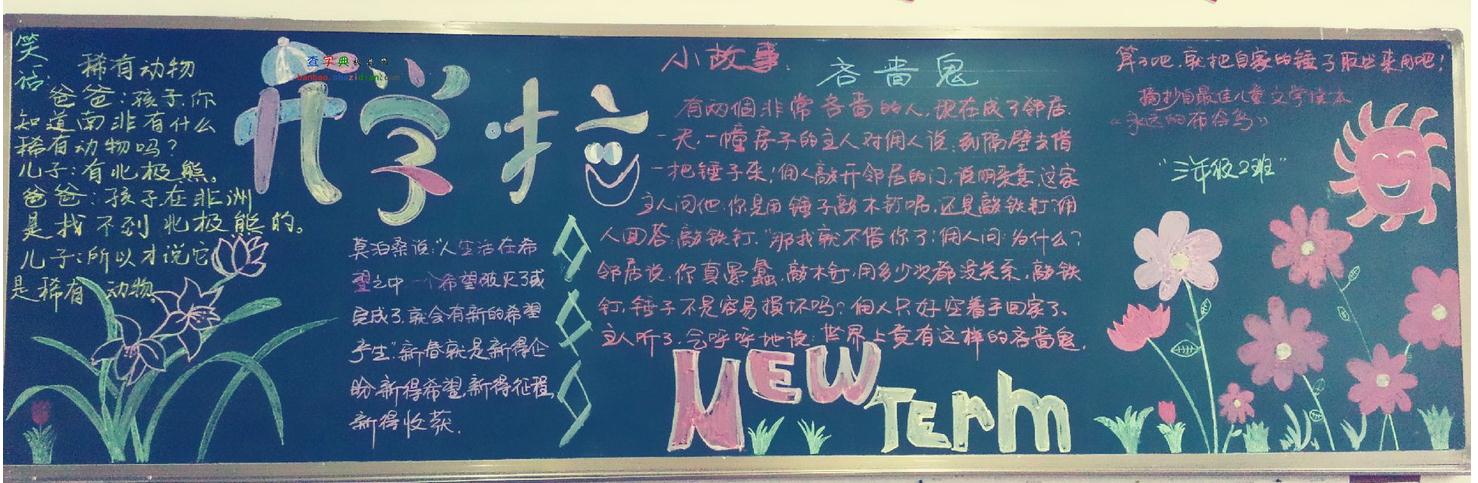 笑话:
稀有动物
爸爸:孩子,你
知道南非有什么
稀有动物吗?
儿子:有北极熊。
爸爸:孩子在非洲
是找不到北极熊的。
儿子:所以才说它
是稀有动物
查字典
banbao.chazidian.com
开学啦
莫泊桑说:“人生活在希
望之中一个希望破灭了或
完成了,就会有新的希望
产生”新春就是新得企
盼,新得希望,新得征程,
新得收获.
小故事:
吝啬鬼
有两個非常吝啬的人,现在成了邻居.
一天,一幢房子的主人对佣人说:到隔壁去借
一把锤子来!佣人敲开邻居的门,说明来意,这家
主人问他:你是用锤子敲木钉呢,还是敲铁钉?佣
人回答:敲铁钉.“那我就不借你了!佣人问:为什么?
邻居说:你真愚蠢,敲木钉,用多少次都没关系,敲铁
钉,锤子不是容易損坏吗?佣人只好空着手回家了.
主人听了,气呼呼地说:世界上竟有这样的吝啬鬼.
NEW Term
算了吧,就把自家的锤子取出来用吧!
摘抄自最佳儿童文学读本
《永远的布谷鸟》
“三年级2班”